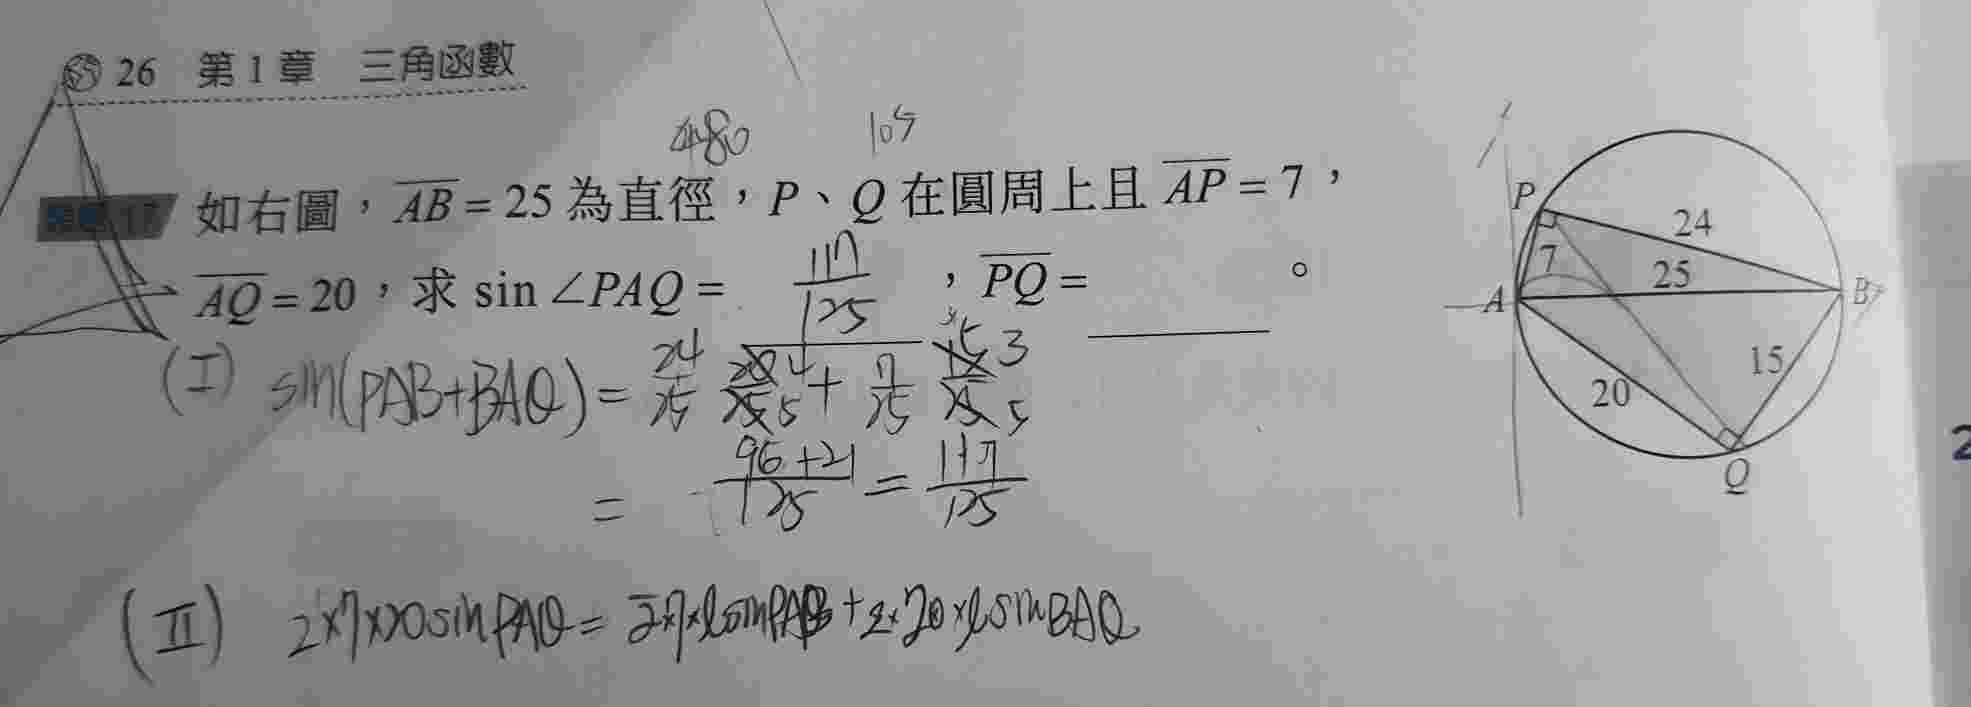 26 第1章 三角函數
480 105
17 如右圖，AB = 25 為直徑，P、Q 在圓周上且 AP = 7，
AQ = 20，求 sin ∠PAQ = 117/125，PQ = ______。
(I) sin(PAB+BAQ) = 24/25 20/25 4/5 + 7/25 15/25 3/5
= 96+21/125 = 117/125
(II) 2×7×20 sin PAQ = 2×7×l sin PAB + 2×20×l sin BAQ
P
24
7
25
A
B
15
20
Q
2